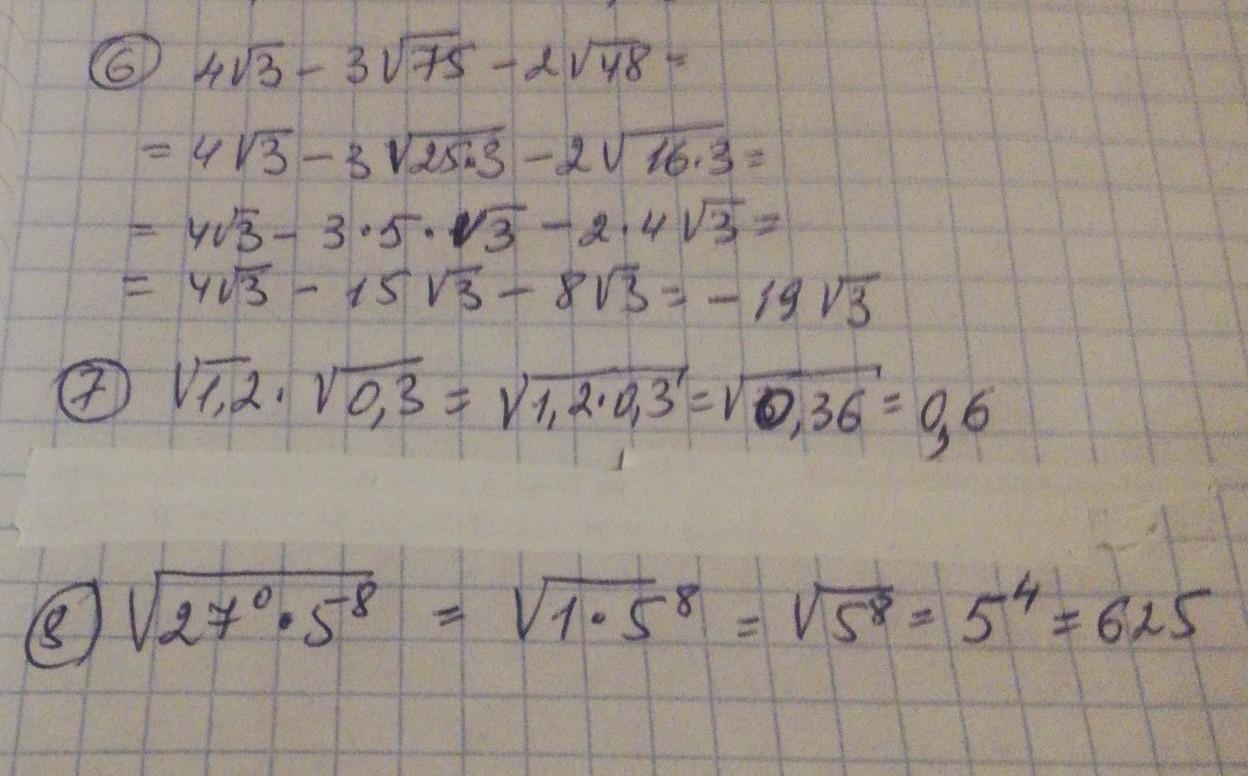 ⑥ 4√3 − 3√75 − 2√48 =
= 4√3 − 3√25·3 − 2√16·3 =
= 4√3 − 3·5·√3 − 2·4√3 =
= 4√3 − 15√3 − 8√3 = −19√3
⑦ √1,2 · √0,3 = √1,2·0,3 = √0,36 = 0,6
⑧ √27⁰·5⁸ = √1·5⁸ = √5⁸ = 5⁴ = 625